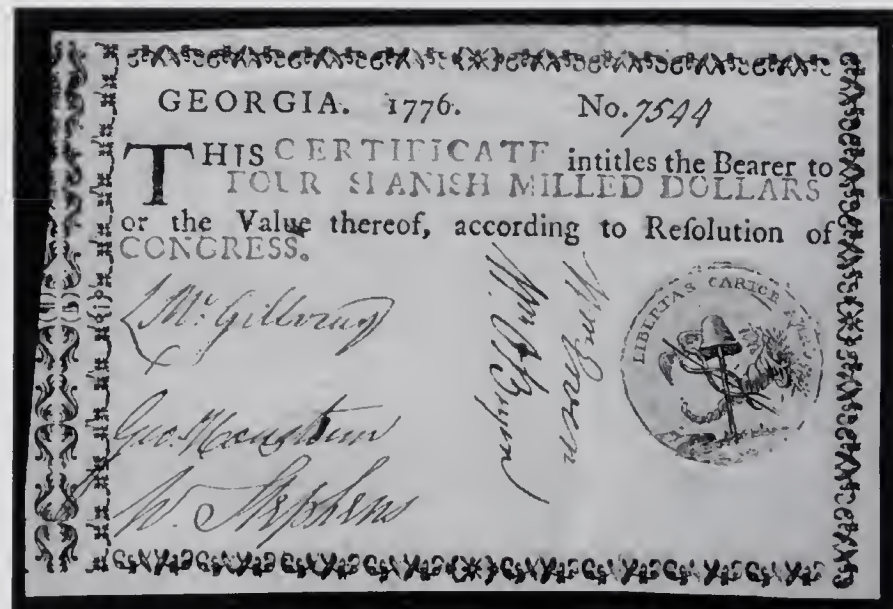 GEORGIA. 1776. No. 7544
THIS CERTIFICATE intitles the Bearer to
FOUR SPANISH MILLED DOLLARS
or the Value thereof, according to Reſolution of
CONGRESS.
Wm O'Bryen
LIBERTAS CARIOR
Geo. Houstoun
W. Stephens